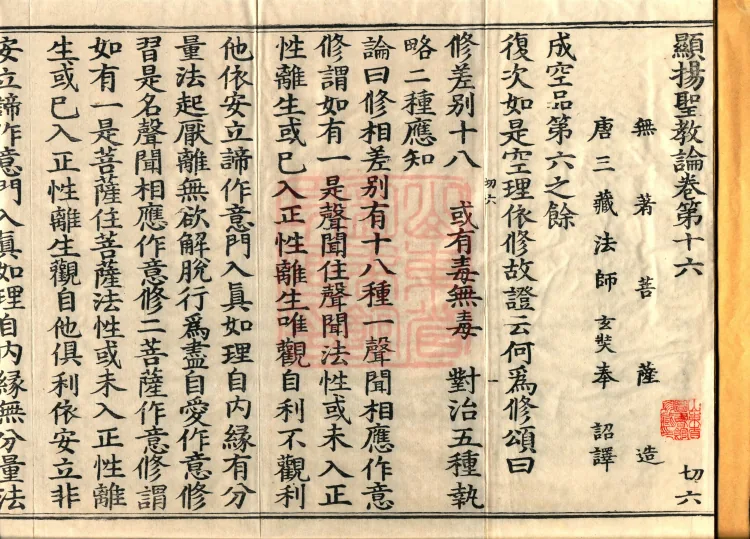 顯揚聖教論卷第十六
切六
無著菩薩造
唐三藏法師玄奘奉 詔譯
成空品第六之餘
復次如是空理依修故證云何爲修頌曰
切六
一
修差別十八 或有毒無毒 對治五種執
略二種應知
論曰修相差別有十八種一聲聞相應作意
修謂如有一是聲聞住聲聞法性或未入正
性離生或已入正性離生唯觀自利不觀利
他依安立諦作意門入眞如理自内緣有分
量法起厭離無欲解脫行爲盡自愛作意修
習是名聲聞相應作意修二菩薩作意修謂
如有一是菩薩住菩薩法性或未入正性離
生或已入正性離生觀自他俱利依安立非
安立諦作意門入眞如理自内緣無分量法